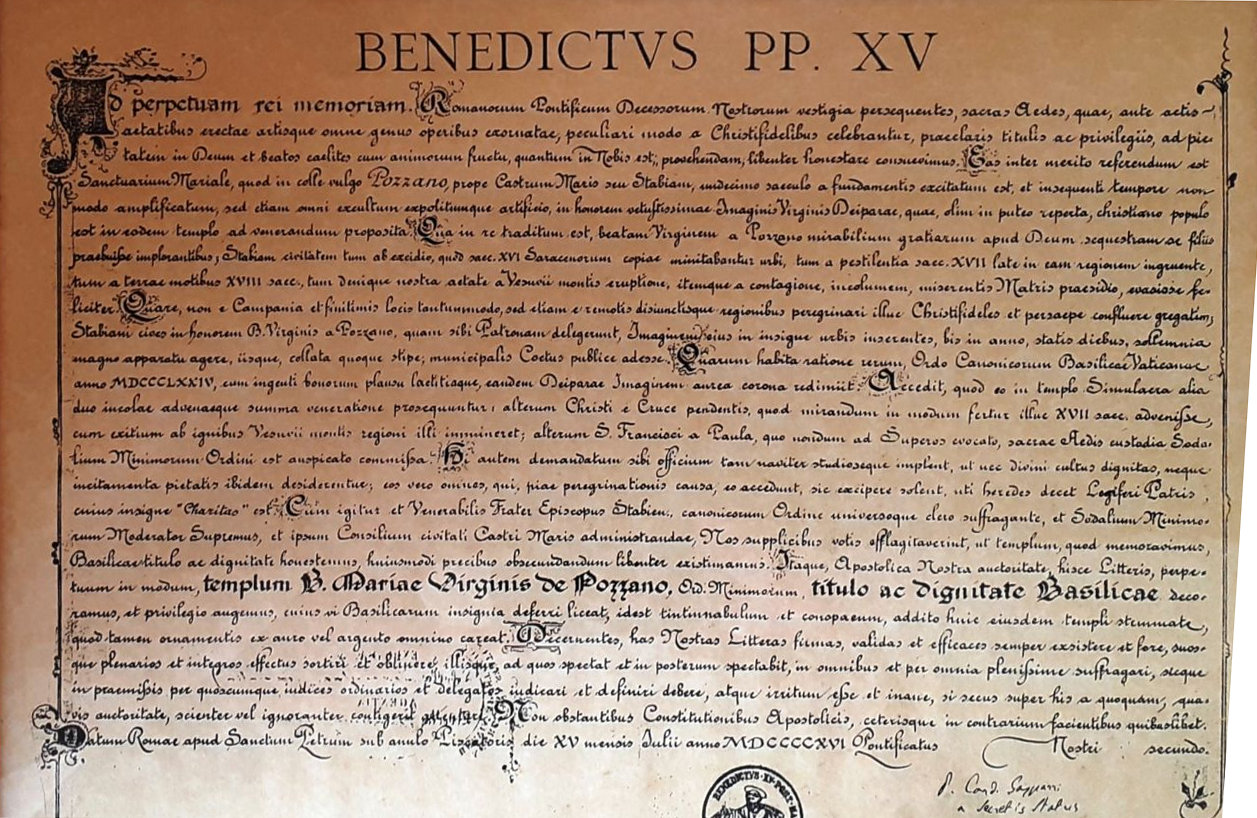 BENEDICTVS PP. XV
Ad perpetuam rei memoriam. Romanorum Pontificum Decessorum Nostrorum vestigia persequentes, sacras Aedes, quae, ante actis
aetatibus erectae artisque omne genus operibus exornatae, peculiari modo a Christifidelibus celebrantur, praeclaris titulis ac privilegiis, ad pie-
tatem in Deum et beatos caelites cum animorum fructu, quantum in Nobis est, provehendam, libenter honestare consuevimus. Eas inter merito referendum est
Sanctuarium Mariale, quod in colle vulgo Pozzano, prope Castrum Maris seu Stabiam, undecimo saeculo a fundamentis excitatum est, et insequenti tempore non
modo amplificatum, sed etiam omni excultum expolitumque artificio, in honorem vetustissimae Imaginis Virginis Deiparae, quae, olim in puteo reperta, christiano populo
est in eodem templo ad venerandum proposita. Qua in re traditum est, beatam Virginem a Pozzano mirabilium gratiarum apud Deum sequestram se filiis
praebuisse implorantibus; Stabiam civitatem tum ab excidio, quod saec. XVI Saracenorum copiae minitabantur urbi, tum a pestilentia saec. XVII late in eam regionem ingruente,
tum a terrae motibus XVIII saec., tum denique nostra aetate a Vesuvii montis eruptione, itemque a contagione, incolumem, miserentis Matris praesidio, evasisse fe-
liciter. Quare, non e Campania et finitimis locis tantummodo, sed etiam e remotis disiunctisque regionibus peregrinari illuc Christifideles et persaepe confluere gregatim;
Stabiani cives in honorem B. Virginis a Pozzano, quam sibi Patronam delegerunt, Imaginem eius in insigne urbis inserentes, bis in anno, statis diebus, sollemnia
magno apparatu agere, iisque, collata quoque stipe, municipalis Coetus publice adesse. Quarum habita ratione rerum, Ordo Canonicorum Basilicae Vaticanae
anno MDCCCLXXIV, cum ingenti bonorum plausu laetitiaque, eandem Deiparae Imaginem aurea corona redimiit. Accedit, quod eo in templo Simulacra alia
duo incolae advenaeque summa veneratione prosequuntur: alterum Christi e Cruce pendentis, quod mirandum in modum fertur illuc XVII saec. advenisse,
cum exitium ab ignibus Vesuvii montis regioni illi immineret; alterum S. Francisci a Paula, quo nondum ad Superos evocato, sacrae Aedis custodia Soda-
lium Minimorum Ordini est auspicato commissa. Hi autem demandatum sibi officium tam naviter studioseque implent, ut nec divini cultus dignitas, neque
incitamenta pietatis ibidem desiderentur; eos vero omnes, qui, piae peregrinationis causa, eo accedunt, sic excipere solent, uti heredes decet Legiferi Patris,
cuius insigne "Charitas" est. Cum igitur et Venerabilis Frater Episcopus Stabien., canonicorum Ordine universoque clero suffragante, et Sodalium Minimo-
rum Moderator Supremus, et ipsum Consilium civitati Castri Maris administrandae, Nos supplicibus votis efflagitaverint, ut templum, quod memoravimus,
Basilicae titulo ac dignitate honestemus, huiusmodi precibus obsecundandum libenter existimamus. Itaque, Apostolica Nostra auctoritate, hisce Litteris, perpe-
tuum in modum, templum B. Mariae Virginis de Pozzano, Ord. Minimorum, titulo ac dignitate Basilicae deco-
ramus, et privilegio augemus, cuius vi Basilicarum insignia deferri liceat, idest tintinnabulum et conopaeum, addito huic eiusdem templi stemmate,
quod tamen ornamentis ex auro vel argento omnino careat. Decernentes, has Nostras Litteras firmas, validas et efficaces semper existere et fore, suos-
que plenarios et integros effectus sortiri et obtinere, illisque, ad quos spectat et in posterum spectabit, in omnibus et per omnia plenissime suffragari, sicque
in praemissis per quoscumque iudices ordinarios et delegatos iudicari et definiri debere, atque irritum esse et inane, si secus super his a quoquam, qua-
vis auctoritate, scienter vel ignoranter contigerit attentare. Non obstantibus Constitutionibus Apostolicis, ceterisque in contrarium facientibus quibuslibet.
Datum Romae apud Sanctum Petrum sub anulo Piscatoris die XV mensis Julii anno MDCCCCXVI Pontificatus Nostri secundo.
P. Card. Gasparri
a Secretis Status
BENEDICTVS·XV·PONT·MA